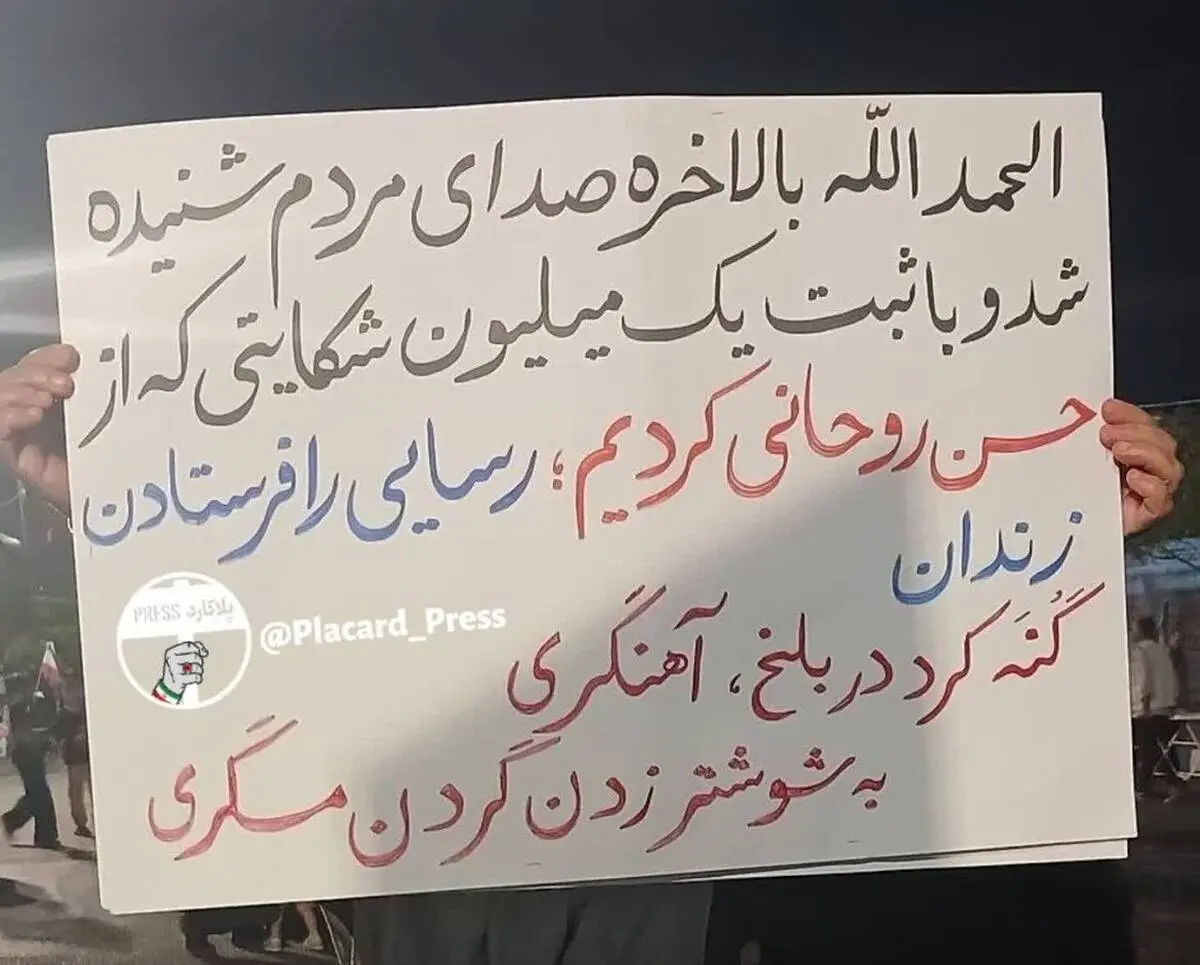 الحمد اللّه بالاخره صدای مردم شنیده
شد و با ثبت یک میلیون شکایتی که از
حسن روحانی کردیم؛ رسایی را فرستادن
زندان
گُنَه کرد در بلخ، آهنگری
به شوشتر زدن گردن مسگری
پلاکارد PRESS
@Placard_Press